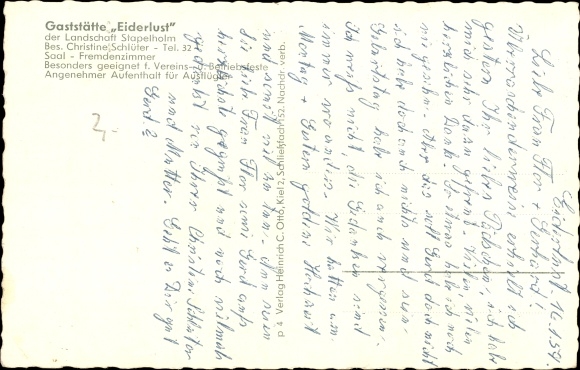 Gaststätte „Eiderlust"
der Landschaft Stapelholm
Bes. Christine Schlüter - Tel. 324
Saal - Fremdenzimmer
Besonders geeignet f. Vereins- u. Betriebsfeste
Angenehmer Aufenthalt für Ausflügler
2,-
p 4 Verlag Heinrich C. Otto, Kiel 2, Schließfach 152. Nachdr. verb.
Eiderlust 16.1.59.
Liebe Frau Flor + Gerhard!
Überraschenderweise erhielt ich
gestern Ihr liebes Päckchen, ich habe
mich sehr darüber gefreut. Vielen, vielen
herzlichen Dank.
nichts und
Geburtstag habe ich auch vergessen.
Ich weiß nicht, die Gedanken sind
immer woanders. Wir hatten am
Montag + Gestern goldene Hochzeit
und somit viel zu tun.
Sie liebe Frau Flor und Gerd aufs
herzlichste gegrüßt und noch vielmals
gedankt von Ihrer Christine Schlüter
und Mutter. Geht es Dir gut
Gerd?